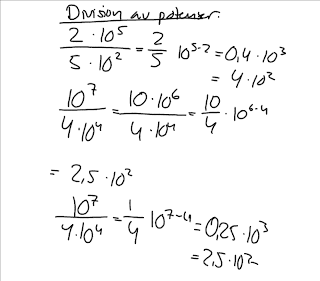 Division av potenser:
2 · 10⁵ / 5 · 10² = 2/5 10⁵⁻² = 0,4 · 10³
= 4 · 10²
10⁷ / 4 · 10⁴ = 10 · 10⁶ / 4 · 10⁴ = 10/4 · 10⁶⁻⁴
= 2,5 · 10²
10⁷ / 4 · 10⁴ = 1/4 10⁷⁻⁴ = 0,25 · 10³
= 2,5 · 10²